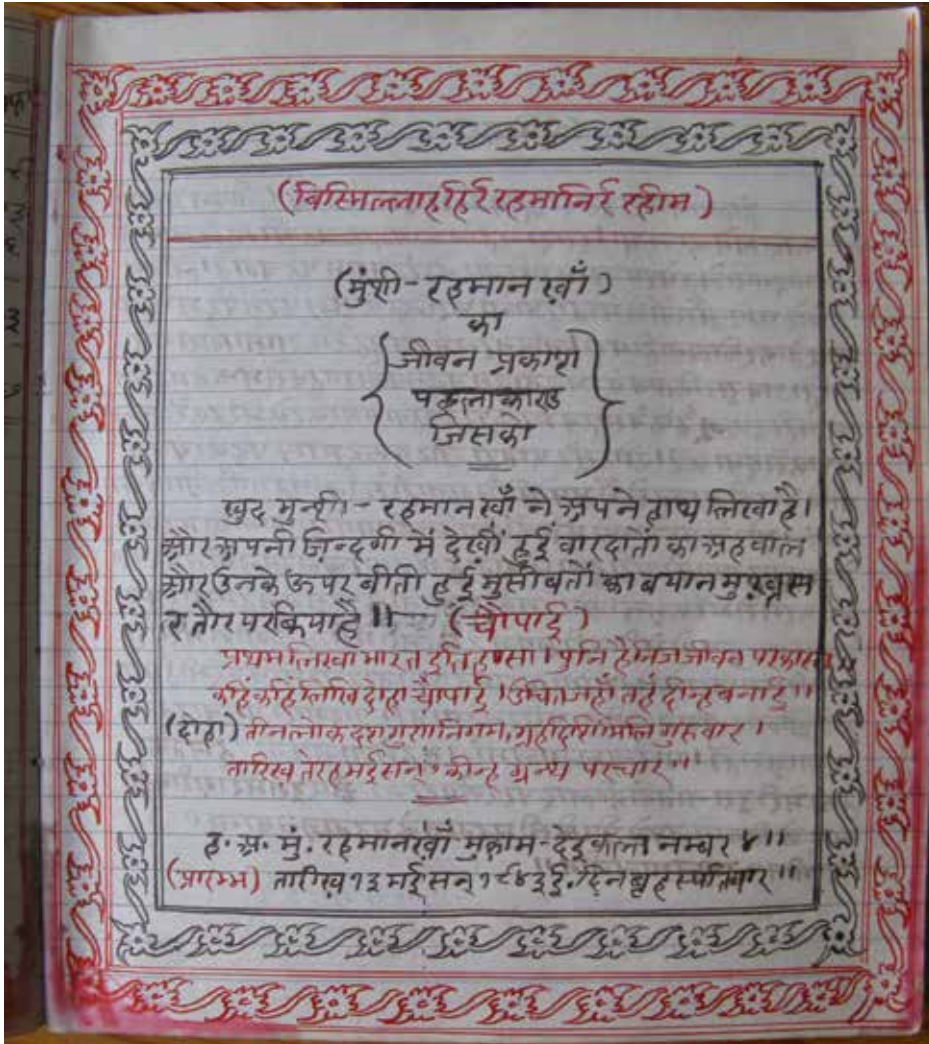 (बिस्मिल्लाहहिर्र रहमानिर्र रहीम)
(मुंशी - रहमान ख़ाँ)
का
जीवन प्रकाश
पहलाकाण्ड
जिसको
खुद मुन्शी - रहमानखाँ ने अपने हाथ लिखा है।
और अपनी ज़िन्दगी में देखीं हुई वारदातों का अहवाल
और उनके ऊपर बीती हुई मुसीबतों का बयान मुख़्तस
र तौर पर किया है ॥ (चौपाई)
प्रथम लिखा भारत इतिहासा। पुनि है निज जीवन परकासा
कहिं कहिं लिखि दोहा चौपाई। उचित जहाँ तहं दीन्ह बनाई॥
(दोहा) तीन लोक दश गुण निगम, ग्रह दिशि मिलि गुरुवार।
तारिख तेरह मई सन् कीन्ह ग्रन्थ परचार॥
ह. अ. मुं. रहमानखाँ मुक़ाम - देइकफेल्त नम्बर ४॥
(प्रारम्भ) तारीख़ १३ मई सन् १९४३ ई. दिन बृहस्पतिवार॥